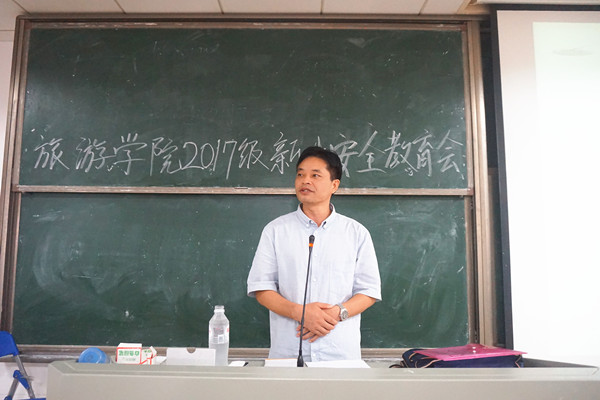 旅游学院2017级新生安全教育会